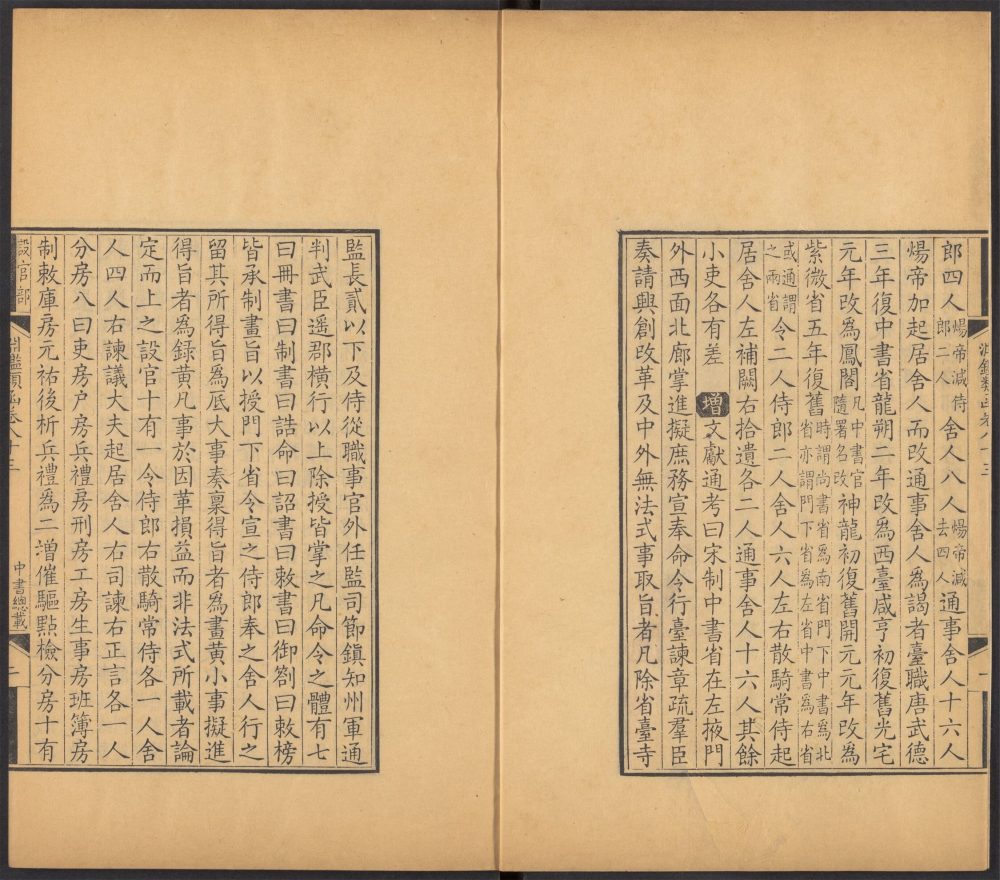 郎四人煬帝減侍郎二人舍人八人煬帝減去四人通事舍人十六人
煬帝加起居舍人而改通事舍人為謁者臺職唐武德
三年復中書省龍朔二年改為西臺咸亨初復舊光宅
元年改為鳳閣凡中書官隨署名改神龍初復舊開元元年改為
紫微省五年復舊時謂尚書省為南省門下中書為北省亦謂門下省為左省中書為右省
或通謂之兩省令二人侍郎二人舍人六人左右散騎常侍起
居舍人左補闕右拾遺各二人通事舍人十六人其餘
小吏各有差 增文獻通考曰宋制中書省在左掖門
外西面北廊掌進擬庶務宣奉命令行臺諫章疏羣臣
奏請興創改革及中外無法式事取旨者凡除省臺寺
監長貳以下及侍從職事官外任監司節鎮知州軍通
判武臣遥郡橫行以上除授皆掌之凡命令之體有七
曰冊書曰制書曰誥命曰詔書曰敕書曰御劄曰敕榜
皆承制畫旨以授門下省令宣之侍郎奉之舍人行之
留其所得旨為底大事奏稟得旨者為畫黄小事擬進
得旨者為錄黄凡事於因革損益而非法式所載者論
定而上之設官十有一令侍郎右散騎常侍各一人舍
人四人右諫議大夫起居舍人右司諫右正言各一人
分房八曰吏房户房兵禮房刑房工房生事房班簿房
制敕庫房元祐後析兵禮為二增催驅點檢分房十有
設官部
中書總載
二